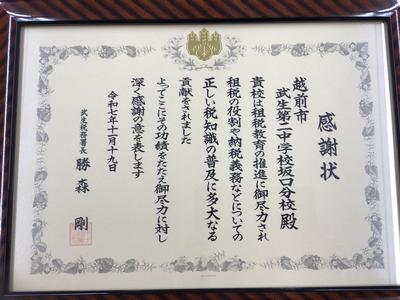 感謝状
越前市
武生第二中学校坂口分校殿
貴校は租税教育の推進に御尽力され
租税の役割や納税義務などについての
正しい税知識の普及に多大なる
貢献をされました
よってここにその功績をたたえ御尽力に対し
深く感謝の意を表します
令和七年十一月十九日
武生税務署長 勝森 剛